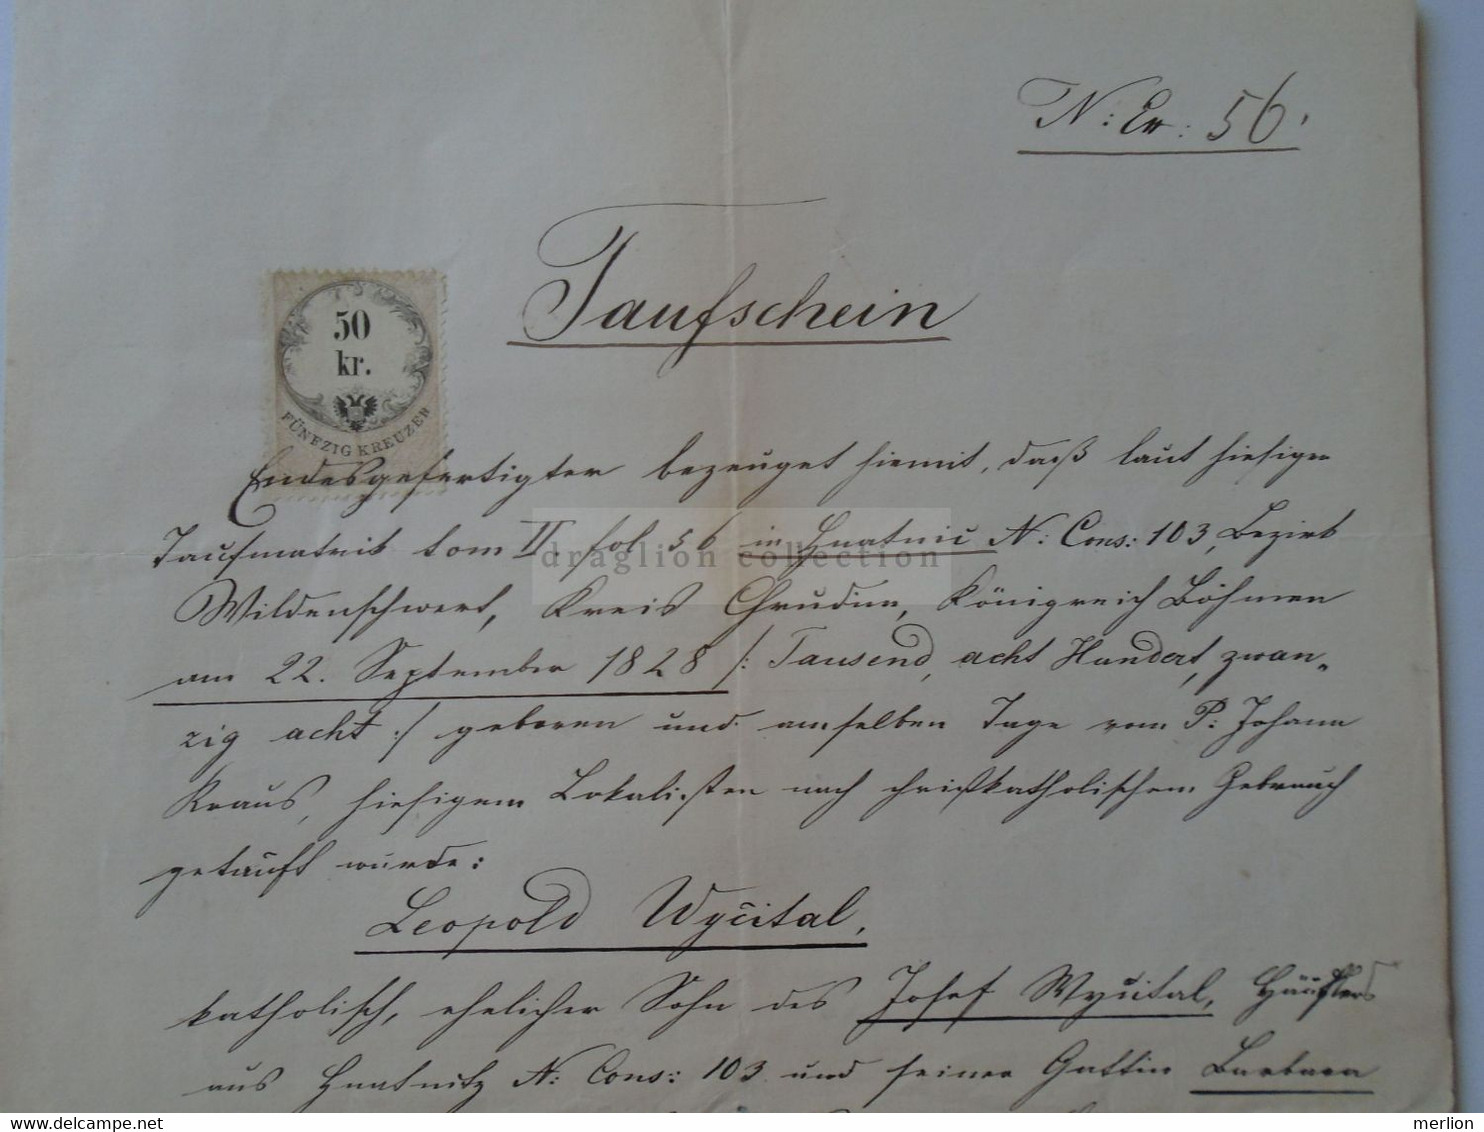 N: Ex: 56.
Taufschein
50
kr.
FÜNFZIG KREUZER
Endesgefertigter bezeuget hiemit, daß laut hiesiger
Taufmatrik tom II fol 56 in Hnatnic N: Cons: 103, Bezirk
draglion collection
Wildenschwert, Kreis Chrudim, Königreich Böhmen
am 22. September 1828 /: Tausend, acht Hundert, zwan-
zig acht :/ geboren und amselben Tage vom P: Johann
Kraus, hiesigem Lokalisten nach christkatholischem Gebrauch
getauft wurde:
Leopold Wyčital,
katholisch, ehelicher Sohn des Josef Wyčital, Häuslers
aus Hnatnitz N: Cons: 103 und seiner Gattin Barbara
merlion